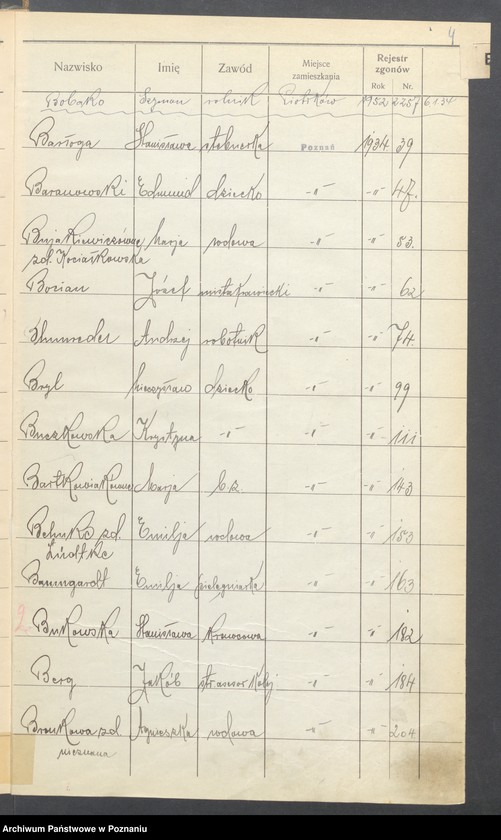 4
Nazwisko Imię Zawód Miejsce zamieszkania Rejestr zgonów
Rok Nr.
Bobąko Szymon rolnik Piotrków 1952 2257 6134
Bartoga Stanisława Poznań 1934 39
Baranowski Edmund dziecko -"- -"- 47.
Bujakiewiczówna Marja wdowa -"- 53.
zd. Kociatkowska
Bocian Józef -"- -"- 62
Andrzej robotnik -"- -"- 74.
Bryl Mieczysław dziecko -"- -"- 99
Buczkowska Krystyna -"- -"- -"- 111
Bartkowiakowa Marja b.z. -"- -"- 143
Behnke zd. Emilja wdowa -"- -"- 153
Lüdtke
Baumgardt Emilja pielęgniarka -"- -"- 163
2 Bukowska Stanisława krawcowa -"- -"- 182
Berg Jakób -"- -"- 184
Bronkowa zd. Agnieszka wdowa -"- -"- 204
nieznana
Archiwum Państwowe w Poznaniu